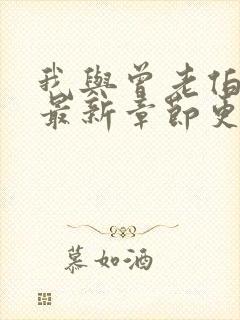 我與曾老伯
最新章節更
慕如酒